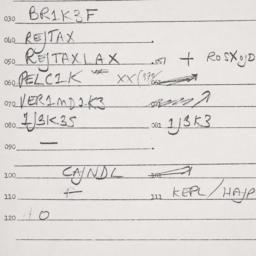 030 BR1K3F
040 REJTAX
050 REJTAX1AX 051 + ROSXOJD
060 PELC1K XX(378/
070 VER1MD1K3
080 1J3K35 081 1J3K3
090 —
100 CAJNDL
+ 111 KEPL/HAJP
110
120 O